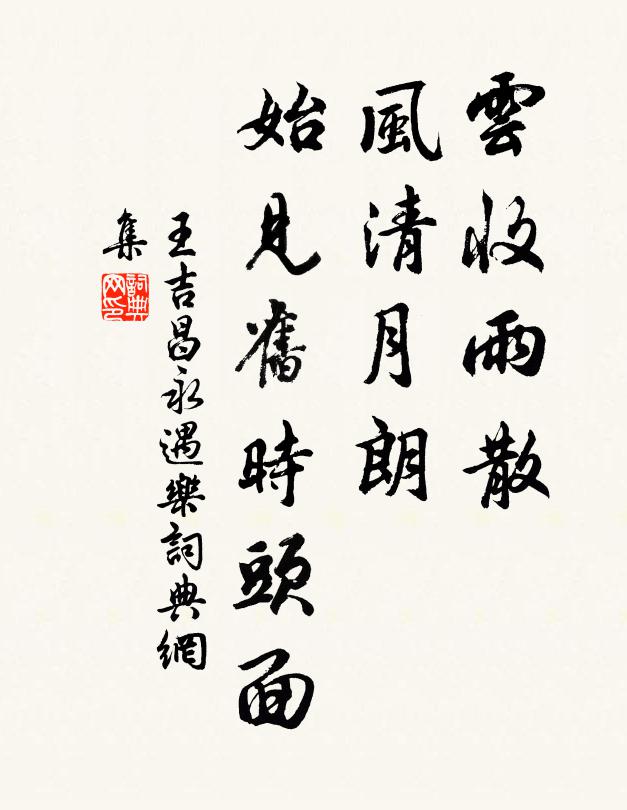 雲收雨散
風清月朗
始見舊時頭面
王吉昌永遇樂詞典網
集
詞典
网印